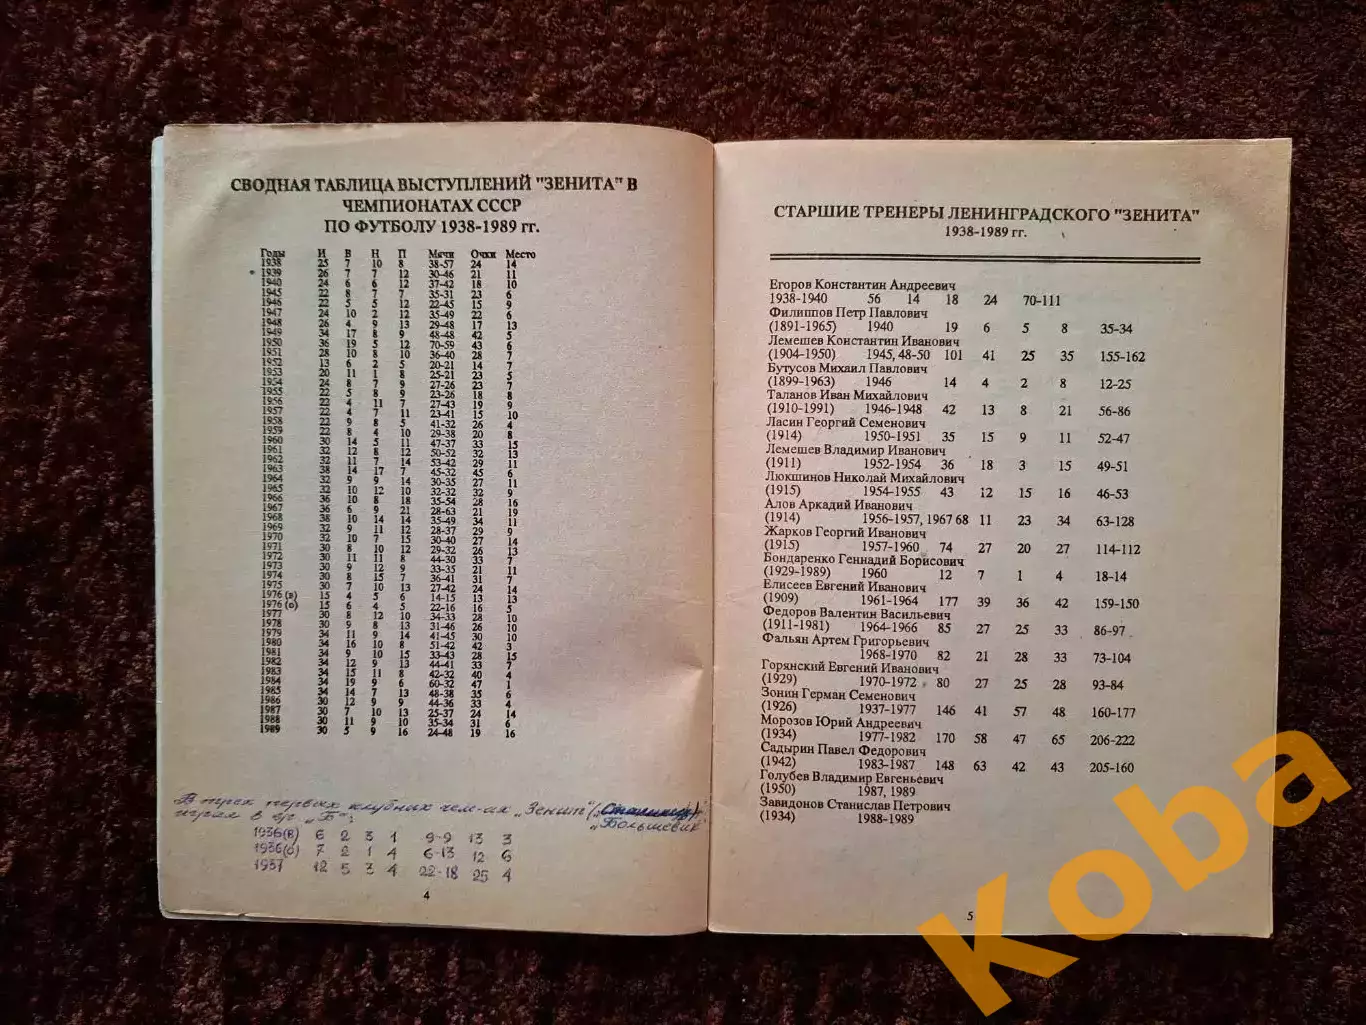 СВОДНАЯ ТАБЛИЦА ВЫСТУПЛЕНИЙ "ЗЕНИТА" В
ЧЕМПИОНАТАХ СССР
ПО ФУТБОЛУ 1938-1989 гг.
Годы И В Н П Мячи Очки Место
1938 25 7 10 8 38-57 24 14
1939 26 7 7 12 30-46 21 11
1940 24 6 6 12 37-42 18 10
1945 22 8 7 7 35-31 23 6
1946 22 5 5 12 22-45 15 9
1947 24 10 2 12 35-49 22 6
1948 26 4 9 13 29-48 17 13
1949 34 17 8 9 48-48 42 5
1950 36 19 5 12 70-59 43 6
1951 28 10 8 10 36-40 28 7
1952 13 6 2 5 20-21 14 7
1953 20 11 1 8 25-21 23 5
1954 24 8 7 9 27-26 23 7
1955 22 5 8 9 23-26 18 8
1956 22 4 11 7 27-43 19 9
1957 22 4 7 11 23-41 15 10
1958 22 9 8 5 41-32 26 4
1959 22 8 4 10 29-38 20 8
1960 30 14 5 11 47-37 33 15
1961 32 12 8 12 50-52 32 13
1962 32 11 7 14 53-42 29 11
1963 38 14 17 7 45-32 45 6
1964 32 9 9 14 30-35 27 11
1965 32 10 12 10 32-32 32 9
1966 36 10 8 18 35-54 28 16
1967 36 6 9 21 28-63 21 19
1968 38 10 14 14 35-49 34 11
1969 32 9 11 12 28-37 29 9
1970 32 10 7 15 30-40 27 14
1971 30 8 10 12 29-32 26 13
1972 30 11 11 8 44-30 33 7
1973 30 9 12 9 33-35 21 11
1974 30 8 15 7 36-41 31 7
1975 30 7 10 13 27-42 24 14
1976 (в) 15 4 5 6 14-15 13 13
1976 (о) 15 6 4 5 22-16 16 5
1977 30 8 12 10 34-33 28 10
1978 30 9 8 13 31-46 26 10
1979 34 11 9 14 41-45 30 10
1980 34 16 10 8 51-42 42 3
1981 34 9 10 15 33-43 28 15
1982 34 12 9 13 44-41 33 7
1983 34 15 11 8 42-32 40 4
1984 34 19 9 6 60-32 47 1
1985 34 14 7 13 48-38 35 6
1986 30 12 9 9 44-36 33 4
1987 30 7 10 13 25-37 24 14
1988 30 11 9 10 35-34 31 6
1989 30 5 9 16 24-48 19 16
В трех первых клубных чем-ах "Зенит" ("
играл в гр. "Б": "Большевик"
1936(в) 6 2 3 1 9-9 13 3
1936(о) 7 2 1 4 6-13 12 6
1937 12 5 3 4 22-18 25 4
4
СТАРШИЕ ТРЕНЕРЫ ЛЕНИНГРАДСКОГО "ЗЕНИТА"
1938-1989 гг.
Егоров Константин Андреевич
1938-1940 56 14 18 24 70-111
Филиппов Петр Павлович
(1891-1965) 1940 19 6 5 8 35-34
Лемешев Константин Иванович
(1904-1950) 1945, 48-50 101 41 25 35 155-162
Бутусов Михаил Павлович
(1899-1963) 1946 14 4 2 8 12-25
Таланов Иван Михайлович
(1910-1991) 1946-1948 42 13 8 21 56-86
Ласин Георгий Семенович
(1914) 1950-1951 35 15 9 11 52-47
Лемешев Владимир Иванович
(1911) 1952-1954 36 18 3 15 49-51
Люкшинов Николай Михайлович
(1915) 1954-1955 43 12 15 16 46-53
Алов Аркадий Иванович
(1914) 1956-1957, 1967 68 11 23 34 63-128
Жарков Георгий Иванович
(1915) 1957-1960 74 27 20 27 114-112
Бондаренко Геннадий Борисович
(1929-1989) 1960 12 7 1 4 18-14
Елисеев Евгений Иванович
(1909) 1961-1964 177 39 36 42 159-150
Федоров Валентин Васильевич
(1911-1981) 1964-1966 85 27 25 33 86-97
Фальян Артем Григорьевич
1968-1970 82 21 28 33 73-104
Горянский Евгений Иванович
(1929) 1970-1972 80 27 25 28 93-84
Зонин Герман Семенович
(1926) 1937-1977 146 41 57 48 160-177
Морозов Юрий Андреевич
(1934) 1977-1982 170 58 47 65 206-222
Садырин Павел Федорович
(1942) 1983-1987 148 63 42 43 205-160
Голубев Владимир Евгеньевич
(1950) 1987, 1989
Завидонов Станислав Петрович
(1934) 1988-1989
5
Koba